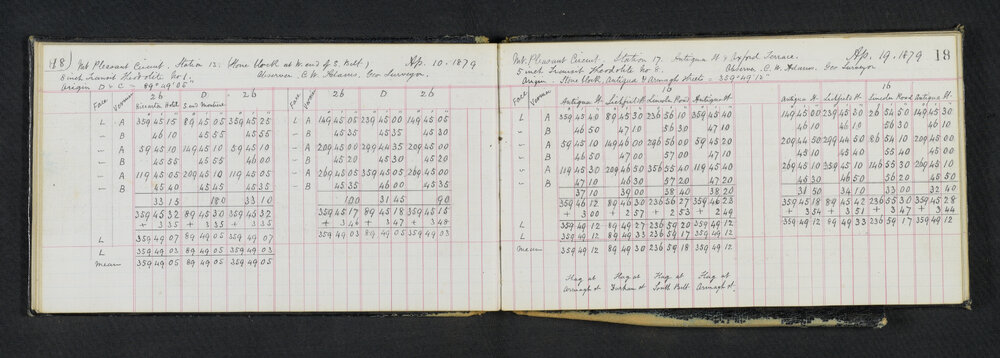 18) Mt. Pleasant Circuit. Station 13. (Stone block at W. end of S. Belt) Ap. 10. 1879
5 inch Transit Theodolite No 1. Observer C. W. Adams. Geo Surveyor.
Origin D & C = 89° 49' 05"
Face Vernier 26 D 26 Face Vernier 26 D 26
L A 359 45 15 89 45 05 359 45 25 L A 149 45 05 239 45 00 149 45 05
" B 46 10 45 55 45 55 " B 45 35 45 35 45 30
" A 59 45 10 149 45 10 59 45 10 " A 209 45 00 299 44 35 209 45 00
" B 45 55 45 55 46 00 " B 45 20 45 30 45 20
" A 119 45 05 209 45 10 119 45 05 " A 269 45 05 359 45 05 269 45 00
" B 45 40 45 45 45 35 " B 45 35 46 00 45 35
33 15 180 33 10 100 31 45 90
359 45 32 89 45 30 359 45 32 359 45 17 89 45 18 359 45 15
+ 3 35 + 3 35 + 3 35 + 3 46 + 3 47 + 3 48
L 359 49 07 89 49 05 359 49 07 359 49 03 89 49 05 359 49 03
L 359 49 03 89 49 05 359 49 03
mean 359 49 05 89 49 05 359 49 05
Mt. Pleasant Circuit. Station 17. Antigua St & Oxford Terrace. Ap. 19. 1879 18
5 inch Transit Theodolite No 1. Observer. C. W. Adams. Geo Surveyor
Origin. Stone block Antigua & Armagh Streets = 359° 49' 12"
16 16
Face Vernier Antigua St. Lichfield St Lincoln Road Antigua St. Antigua St. Lichfield St Lincoln Road Antigua St.
L A 359 45 40 89 45 30 236 56 10 359 45 40 149 45 00 239 45 30 26 54 50 149 45 30
" B 46 50 47 10 56 30 47 10 46 10 46 10 56 30 46 10
" A 59 45 10 149 46 00 296 56 00 59 45 20 209 44 50 299 44 50 86 54 10 209 45 00
" B 46 50 47 00 57 00 47 10 45 10 45 40 55 40 45 00
" A 119 45 30 209 46 50 356 55 40 119 45 40 269 45 10 359 45 10 146 55 30 269 45 10
" B 47 10 46 30 57 20 47 20 45 30 46 50 56 20 45 50
37 10 39 00 38 40 38 20 31 50 34 10 33 00 32 40
359 46 12 89 46 30 236 56 27 359 46 23 359 45 18 89 45 42 236 55 30 359 45 28
+ 3 00 + 2 57 + 2 53 + 2 49 + 3 54 + 3 51 + 3 47 + 3 44
L 359 49 12 89 49 27 236 59 20 359 49 12 359 49 12 89 49 33 236 59 17 359 49 12
L 359 49 12 89 49 33 236 59 17 359 49 12
mean 359 49 12 89 49 30 236 59 18 359 49 12
Flag at Flag at Flag at Flag at
Armagh st. Durham st South Belt Armagh st.